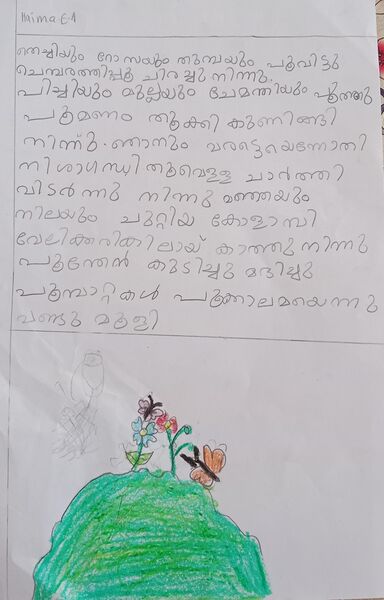 Naima E.A
തെച്ചിയും റോസയും തുമ്പയും പൂവിട്ടു
ചെമ്പരത്തിപ്പൂ ചിരച്ചു നിന്നു.
പിച്ചിയും മുല്ലയും ചേമന്തിയും പൂത്തു
പൂമണം തൂക്കി കുണിങ്ങി
നിന്നു. ഞാനും വരട്ടെയെന്നോതി
നിശാഗന്ധി തൂവെള്ള ചാർത്തി
വിടർന്നു നിന്നു മഞ്ഞയും
നിലയും ചുറ്റിയ കോളാമ്പി
വേലിക്കരികിലായ് കാത്തു നിന്നു
പൂന്തേൻ കുടിച്ചു മദിച്ചു
പൂമ്പാറ്റകൾ പൂക്കാലമായെന്നു
വണ്ടു മൂളി